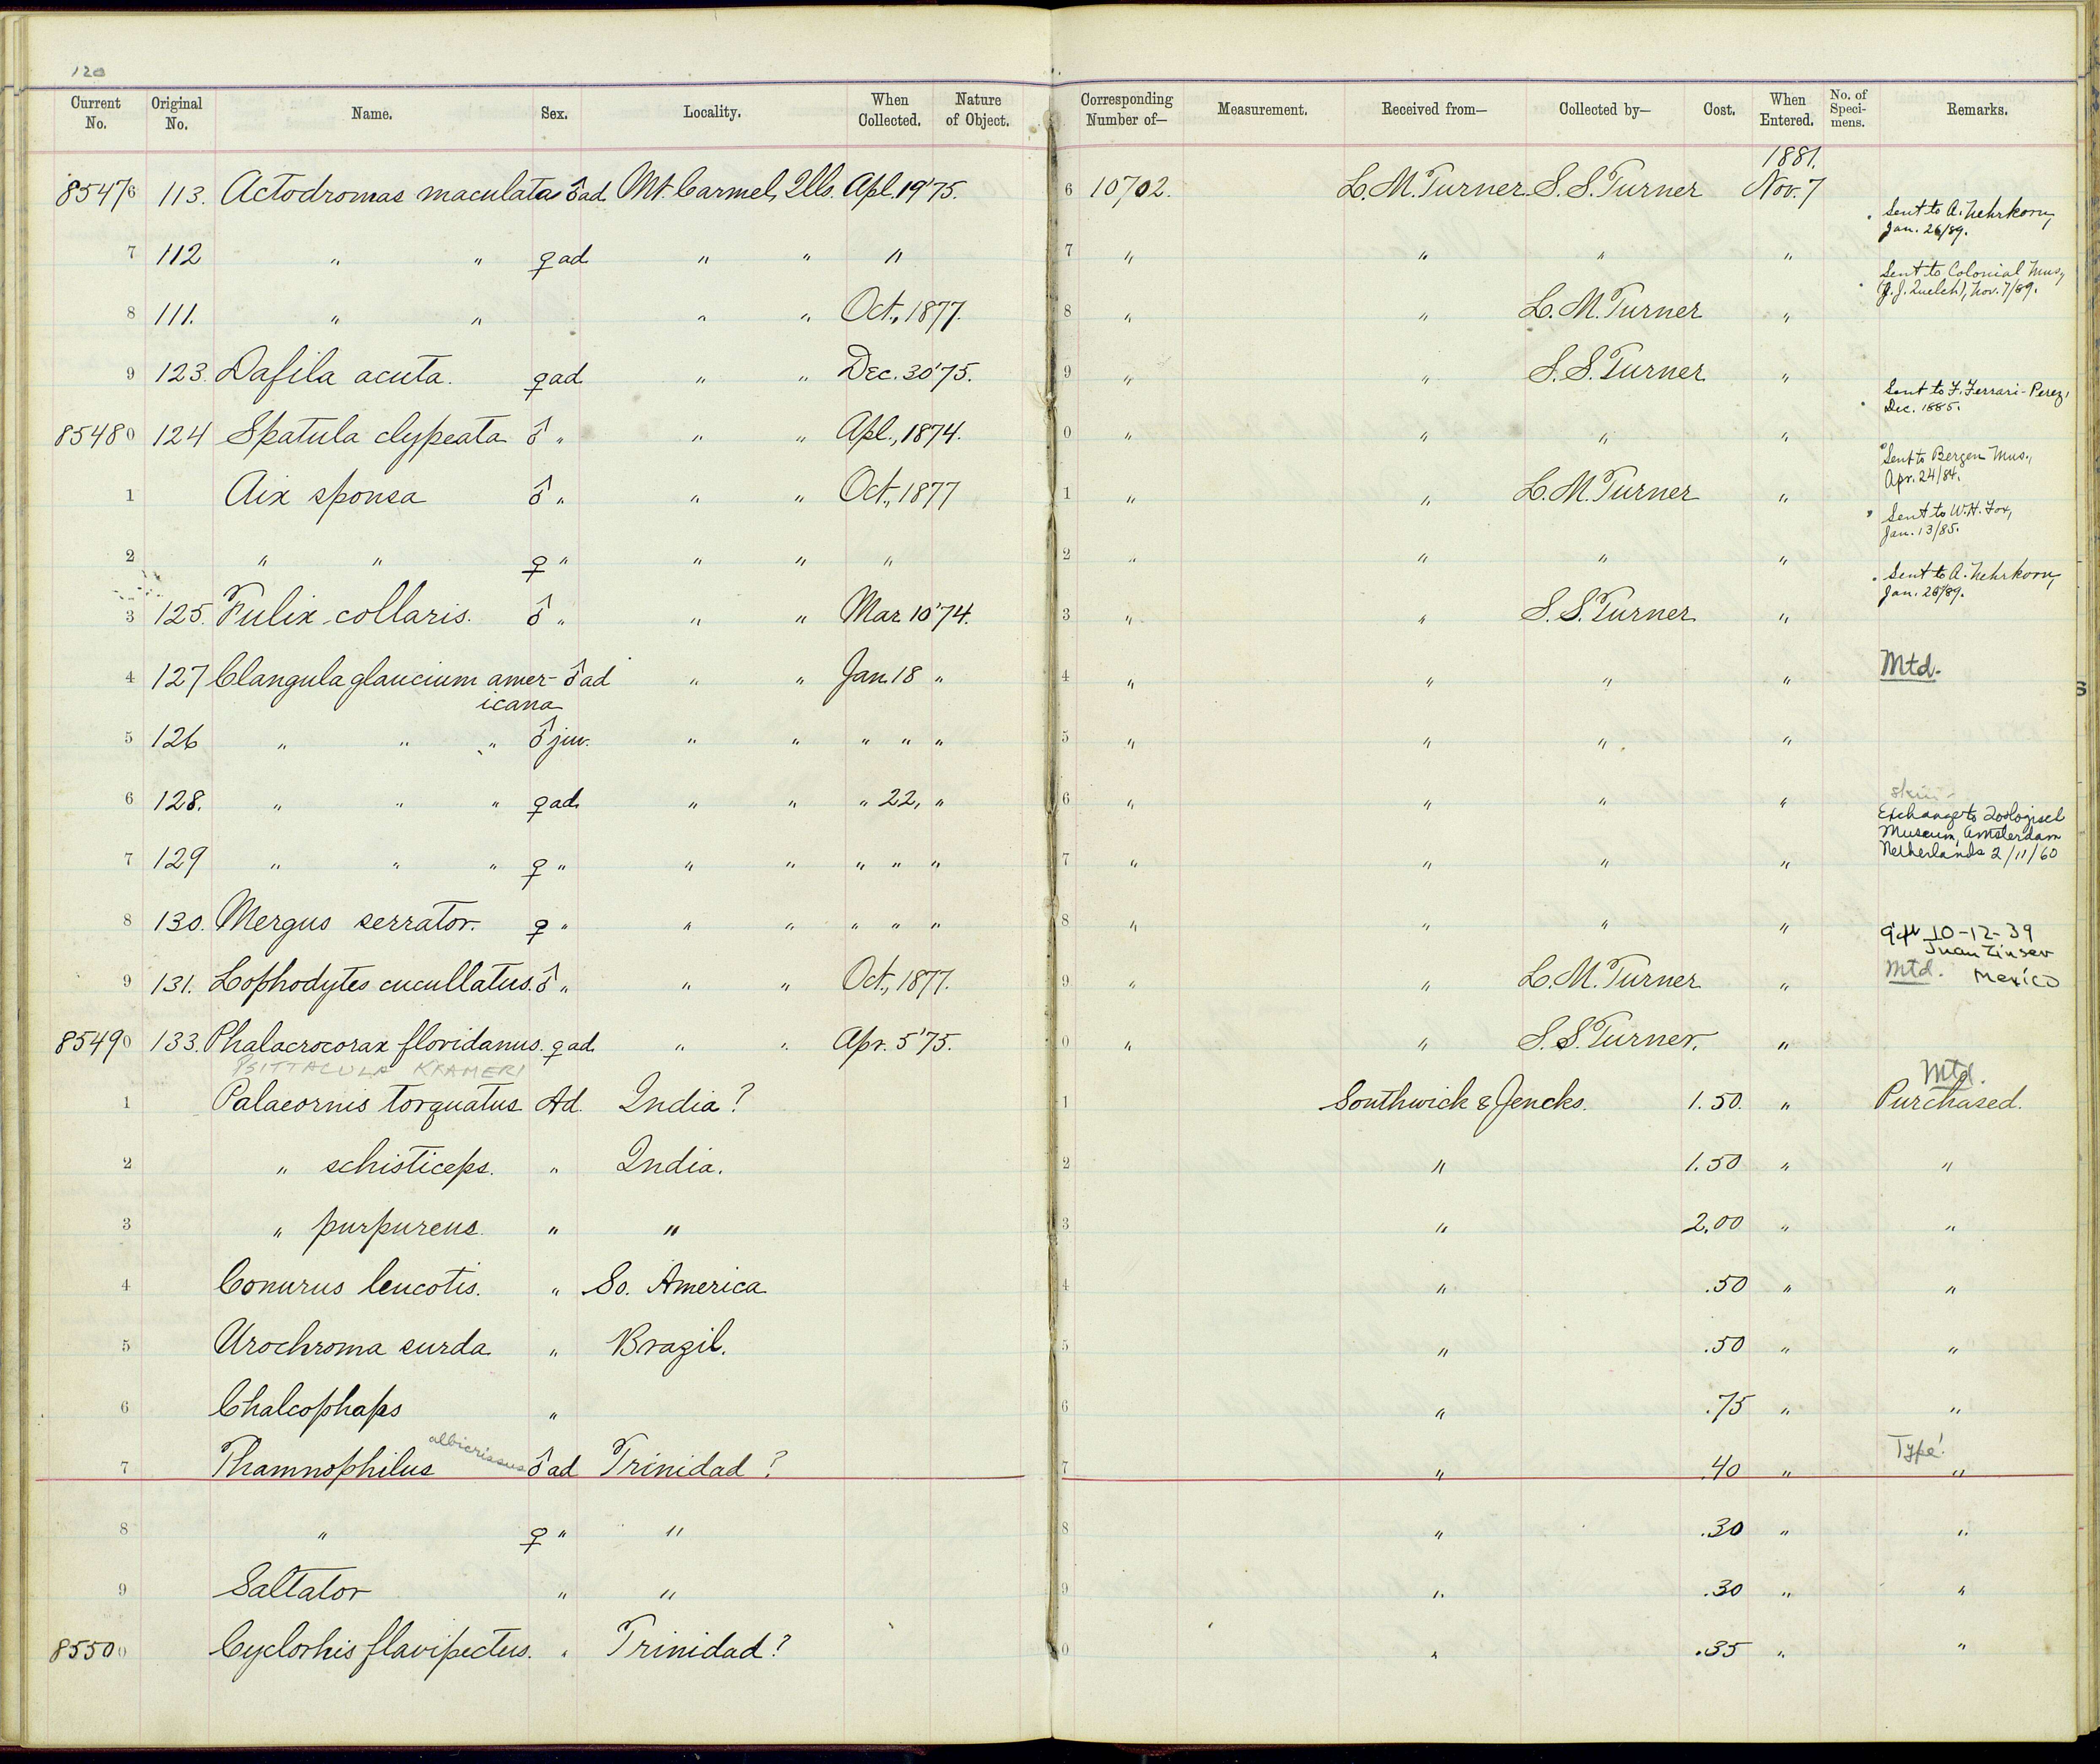 120
Current No. Original No. Name. Sex. Locality. When Collected. Nature of Object. Corresponding Number of— Measurement. Received from— Collected by— Cost. When Entered. No. of Speci- mens. Remarks.
1881.
85476 113. Actodromas maculata ♂ ad. Mt. Carmel, Ills. Apl. 19 '75. 6 10702. L. M. Turner S. S. Turner Nov. 7 Sent to A. Nehrkorn, Jan. 26/89.
7 112 " " ♀ ad " " " 7 " " " " Sent to Colonial Mus., (J. J. Quelch), Nov. 7/89.
8 111. " " " " Oct., 1877. 8 " " L. M. Turner "
9 123. Dafila acuta. ♀ ad " " Dec. 30 '75. 9 " " S. S. Turner " Sent to F. Ferrari-Perez, Dec. 1885.
85480 124 Spatula clypeata ♂ " " " Apl., 1874. 0 " " " " Sent to Bergen Mus., Apr. 24/84.
1 Aix sponsa ♂ " " " Oct., 1877 1 " " L. M. Turner " Sent to W. H. Fox, Jan. 13/85.
2 " " ♀ " " " " 2 " " " " Sent to A. Nehrkorn, Jan. 26/89.
3 125. Fulix collaris. ♂ " " " Mar 10 '74. 3 " " S. S. Turner "
4 127 Clangula glaucium amer- ♂ ad " " Jan. 18 " 4 " " " " Mtd.
icana
5 126 " " " ♂ juv. " " " " " 5 " " " "
6 128. " " " ♀ ad. " " " 22, " 6 " " " " skin -
Exchange to Zoologisch Museum, Amsterdam Netherlands 2/11/60
7 129 " " " ♀ " " " " " " 7 " " " "
8 130. Mergus serrator. ♀ " " " " " " 8 " " " " 10-12-39
Juan Zinser Mexico
9 131. Lophodytes cucullatus. ♂ " " " Oct., 1877. 9 " " L. M. Turner " Mtd.
85490 133. Phalacrocorax floridanus. ♀ ad. " " Apr. 5 '75. 0 " " S. S. Turner. "
PSITTACULA KRAMERI
Mtd.
1 Palaeornis torquatus Ad. India? 1 Southwick & Jencks. 1.50. " Purchased.
2 " schisticeps. " India. 2 " 1.50 " "
3 " purpureus. " " 3 " 2.00 " "
4 Conurus leucotis. " So. America 4 " .50 " "
5 Urochroma surda " Brazil. 5 " .50 " "
6 Chalcophaps " 6 " .75 " "
albicrissus
Type!
7 Thamnophilus ♂ ad Trinidad? 7 " .40 " "
8 " ♀ " " 8 " .30 " "
9 Saltator " " 9 " .30 " "
85500 Cyclorhis flavipectus. " Trinidad? 0 " .35 " "